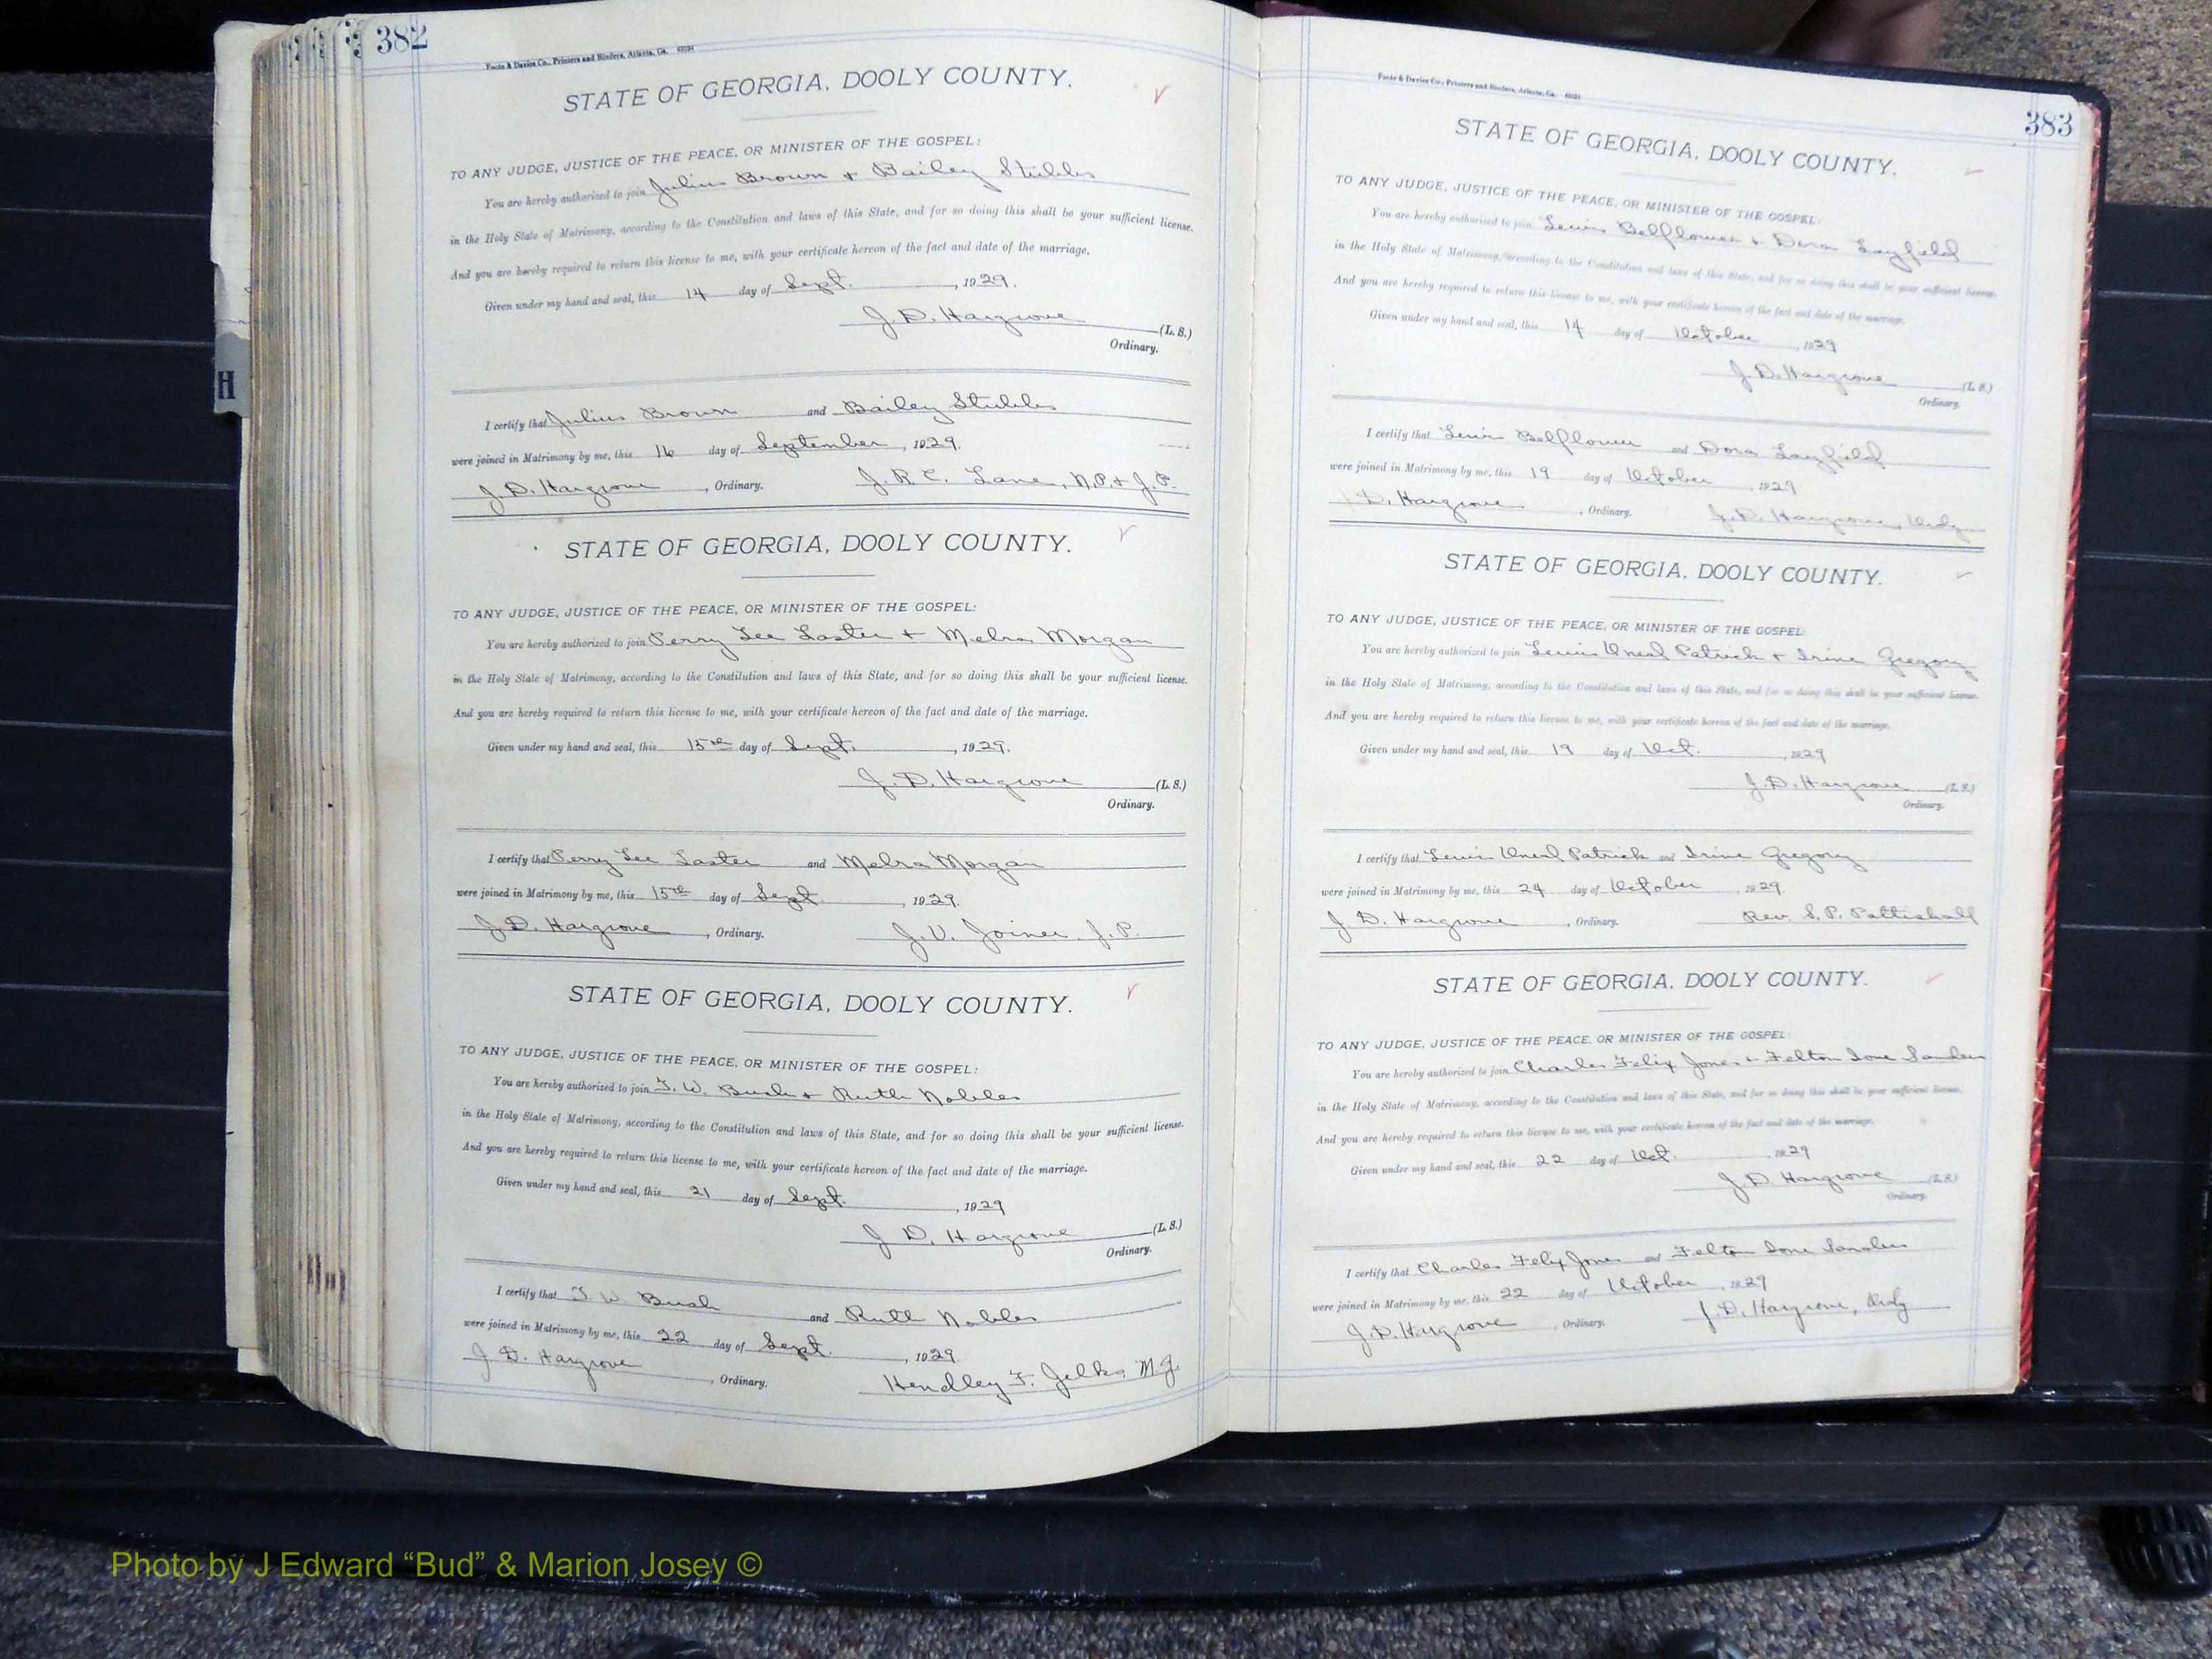 382
Foote & Davies Co., Printers and Binders, Atlanta, Ga.
STATE OF GEORGIA, DOOLY COUNTY.
TO ANY JUDGE, JUSTICE OF THE PEACE, OR MINISTER OF THE GOSPEL:
You are hereby authorized to join Julius Brown + Bailey Stubbs
in the Holy State of Matrimony, according to the Constitution and laws of this State, and for so doing this shall be your sufficient license.
And you are hereby required to return this license to me, with your certificate hereon of the fact and date of the marriage.
Given under my hand and seal, this 14 day of Sept. , 1929.
J. D. Hargrove (L. S.)
Ordinary.
I certify that Julius Brown and Bailey Stubbs
were joined in Matrimony by me, this 16 day of September , 1929.
J. D. Hargrove , Ordinary. J. R. C. Lane, N.P. + J.P.
STATE OF GEORGIA, DOOLY COUNTY.
TO ANY JUDGE, JUSTICE OF THE PEACE, OR MINISTER OF THE GOSPEL:
You are hereby authorized to join Perry Lee Laster + Melra Morgan
in the Holy State of Matrimony, according to the Constitution and laws of this State, and for so doing this shall be your sufficient license.
And you are hereby required to return this license to me, with your certificate hereon of the fact and date of the marriage.
Given under my hand and seal, this 15th day of Sept. , 1929.
J. D. Hargrove (L. S.)
Ordinary.
I certify that Perry Lee Laster and Melra Morgan
were joined in Matrimony by me, this 15th day of Sept. , 1929.
J. D. Hargrove , Ordinary. J. V. Joiner, J. P.
STATE OF GEORGIA, DOOLY COUNTY.
TO ANY JUDGE, JUSTICE OF THE PEACE, OR MINISTER OF THE GOSPEL:
You are hereby authorized to join T. W. Bush + Ruth Nobles
in the Holy State of Matrimony, according to the Constitution and laws of this State, and for so doing this shall be your sufficient license.
And you are hereby required to return this license to me, with your certificate hereon of the fact and date of the marriage.
Given under my hand and seal, this 21 day of Sept. , 1929
J. D. Hargrove (L. S.)
Ordinary.
I certify that T. W. Bush and Ruth Nobles
were joined in Matrimony by me, this 22 day of Sept. , 1929
J. D. Hargrove , Ordinary. Hendley F. Jelks, M.G.
H
383
Foote & Davies Co., Printers and Binders, Atlanta, Ga.
STATE OF GEORGIA, DOOLY COUNTY.
TO ANY JUDGE, JUSTICE OF THE PEACE, OR MINISTER OF THE GOSPEL:
You are hereby authorized to join Lewis Belflower + Dora Layfield
in the Holy State of Matrimony, according to the Constitution and laws of this State, and for so doing this shall be your sufficient license.
And you are hereby required to return this license to me, with your certificate hereon of the fact and date of the marriage.
Given under my hand and seal, this 14 day of October , 1929
J. D. Hargrove (L. S.)
Ordinary.
I certify that Lewis Belflower and Dora Layfield
were joined in Matrimony by me, this 19 day of October , 1929
J. D. Hargrove , Ordinary. J. D. Hargrove, Ordy
STATE OF GEORGIA, DOOLY COUNTY.
TO ANY JUDGE, JUSTICE OF THE PEACE, OR MINISTER OF THE GOSPEL:
You are hereby authorized to join Lewis Oneal Patrick + Irine Gregory
in the Holy State of Matrimony, according to the Constitution and laws of this State, and for so doing this shall be your sufficient license.
And you are hereby required to return this license to me, with your certificate hereon of the fact and date of the marriage.
Given under my hand and seal, this 19 day of Oct. , 1929
J. D. Hargrove (L. S.)
Ordinary.
I certify that Lewis Oneal Patrick and Irine Gregory
were joined in Matrimony by me, this 24 day of October , 1929
J. D. Hargrove , Ordinary. Rev. S. P. Pattishall
STATE OF GEORGIA, DOOLY COUNTY.
TO ANY JUDGE, JUSTICE OF THE PEACE, OR MINISTER OF THE GOSPEL:
You are hereby authorized to join Charles Felix Jones + Felton Ione Sanders
in the Holy State of Matrimony, according to the Constitution and laws of this State, and for so doing this shall be your sufficient license.
And you are hereby required to return this license to me, with your certificate hereon of the fact and date of the marriage.
Given under my hand and seal, this 22 day of Oct. , 1929
J. D. Hargrove (L. S.)
Ordinary.
I certify that Charles Felix Jones and Felton Ione Sanders
were joined in Matrimony by me, this 22 day of October , 1929
J. D. Hargrove , Ordinary. J. D. Hargrove, Ordy
Photo by J Edward “Bud” & Marion Josey ©